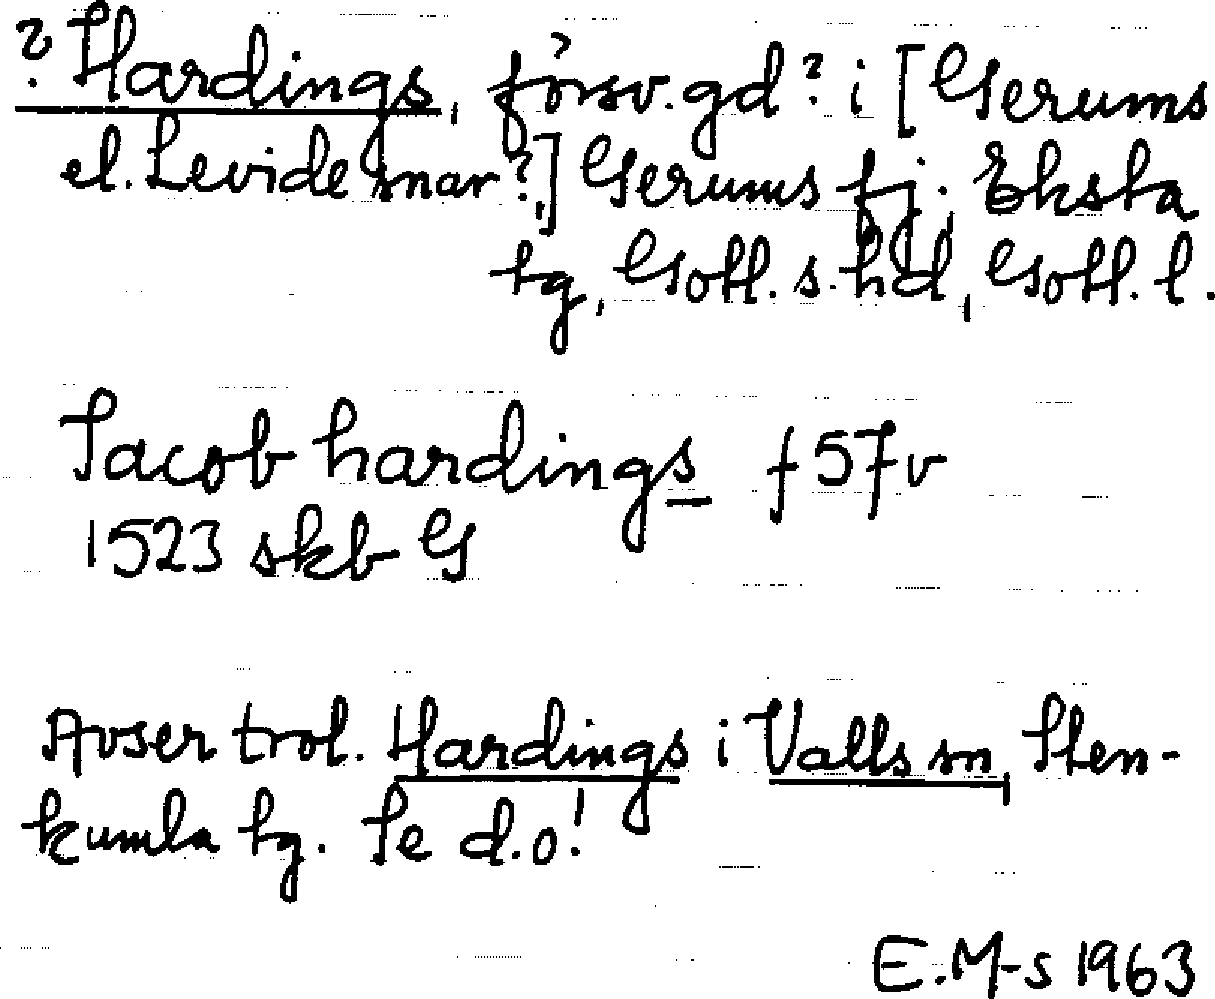 ? Hardings, försv. gd? i [Gerums
el. Levide snar?,] Gerums fj., Eksta
tg, Gotl. s. hd, Gotl. l.
Jacob hardings f 57 v
1523 skb G
Avser trol. Hardings i Valls sn, Sten-
kumla tg. Se d.o!
E.M-s 1963